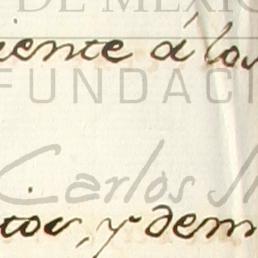 DE MÉXICO
iente á los
FUNDACI
Carlos
tos, y dem